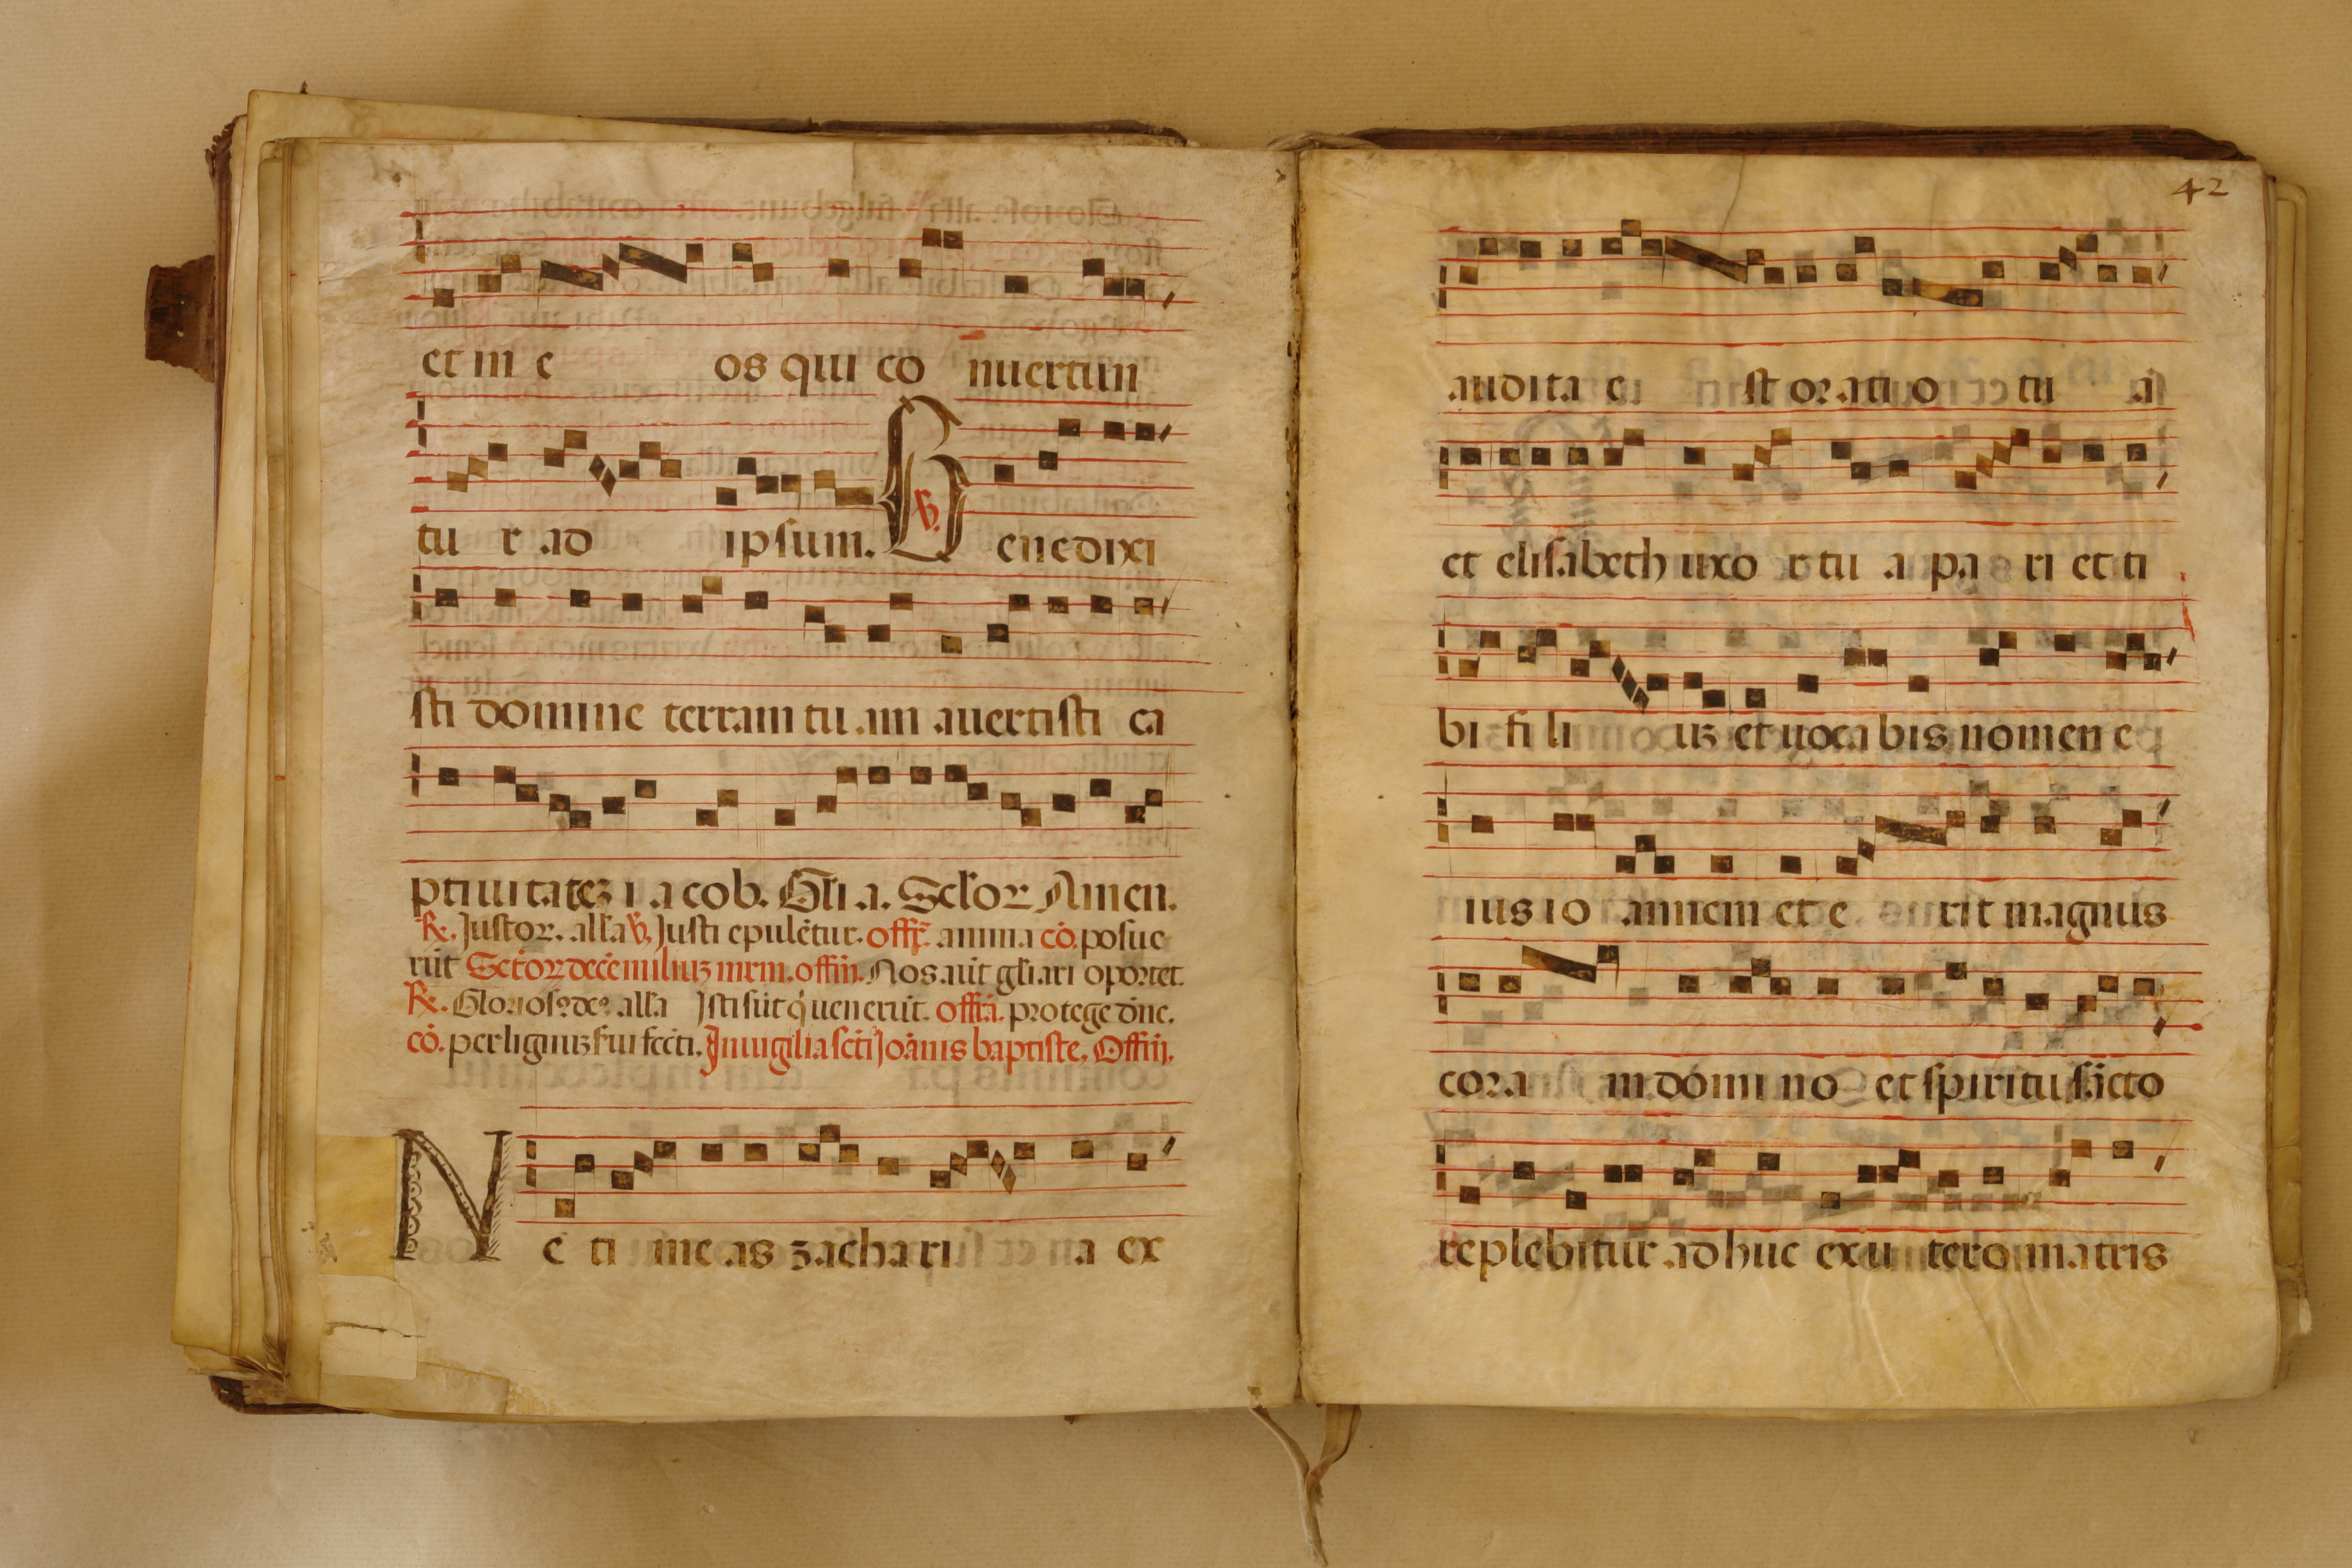 et in e os qui co nuertun
tu r ad ipsum. ℣. Benedixi
sti domine terram tu am auertisti ca
ptiuitateʒ i acob. Gli a. Sclor Amen.
℟. Justoꝝ. alla ℣. Justi epulētur. offr̄. anima cō. posue
rūt Sctoꝝ decē miliuʒ mrm. offm̄. Nos aūt gliari oportet.
℟. Glorios⁹ de⁹. alla Isti sūt q̇ uenerūt. offā. protege dn̄e.
cō. per lignuʒ sui fecti. In uigilia scti Joānis baptiste. Offm̄.
Ne ti me as zacha ri a ex
42
audita e st orati o tu a
et elisabeth uxo r tu a pa ri et ti
bi fi li uʒ et uoca bis nomen e
ius io annem et e rit magnus
cora m domi no et spiritu sācto
replebitur adhuc ex u tero matris